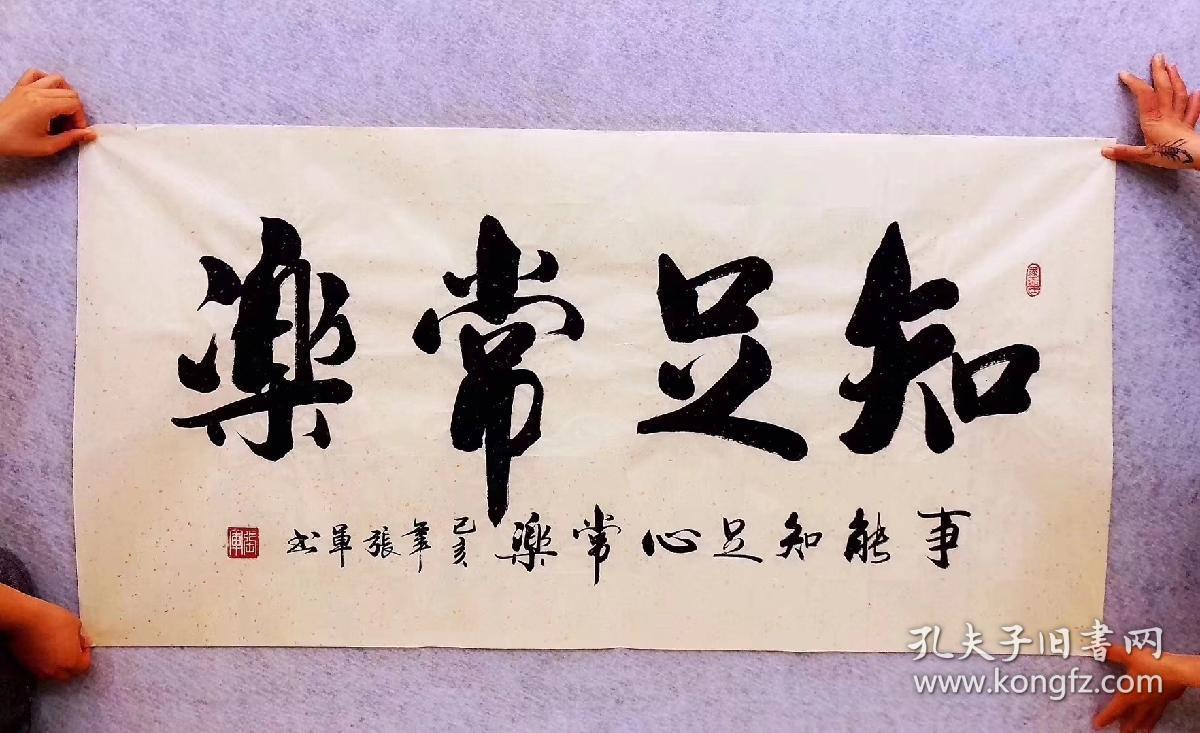 知足常樂
事能知足心常樂 己亥年 張軍书
張軍
孔夫子旧書网
www.kongfz.com